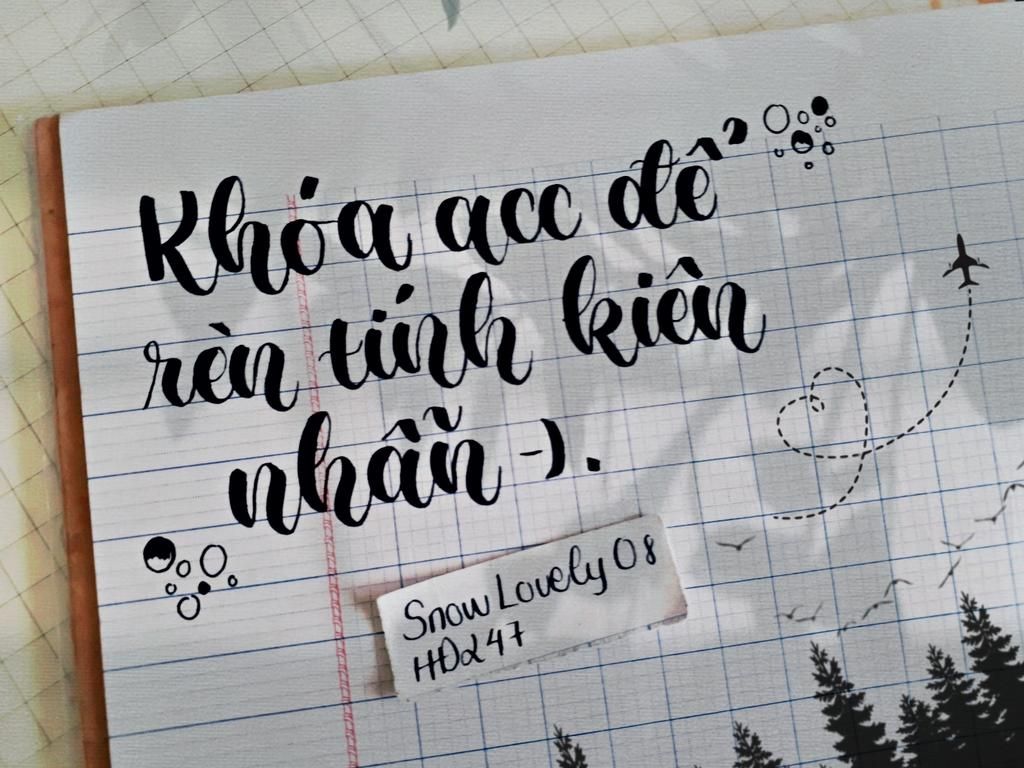 Khóa acc để
rèn tính kiên
nhẫn -).
Snow Lovely 08
HDa47